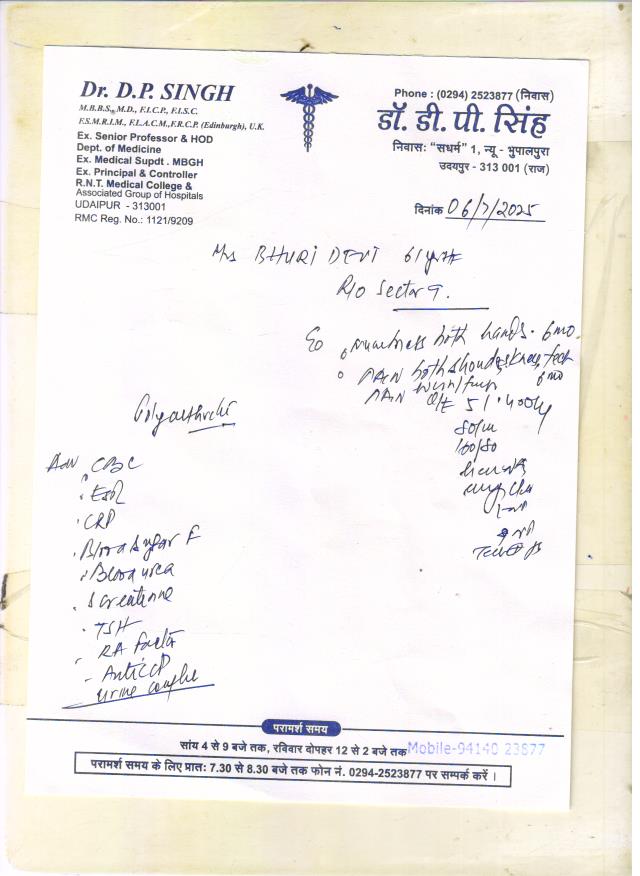 Dr. D.P. SINGH
M.B.B.S., M.D., F.I.C.P., F.I.S.C,
F.S.M.R.I.M., F.L.A.C.M., F.R.C.P. (Edinburgh), U.K.
Ex. Senior Professor & HOD
Dept. of Medicine
Ex. Medical Supdt . MBGH
Ex. Principal & Controller
R.N.T. Medical College &
Associated Group of Hospitals
UDAIPUR - 313001
RMC Reg. No.: 1121/9209
Phone : (0294) 2523877 (निवास)
डॉ. डी. पी. सिंह
निवासः "सधर्म" 1, न्यू - भुपालपुरा
उदयपुर - 313 001 (राज)
दिनांक 06/7/2025
Mrs BHURI DEVI 61
R/o Sector 9.
numbness both hands. 6 mo
PAIN both
PAIN
O/E
80/m
100/80
Adv CBC
ESR
CRP
Blood Sugar F
Blood urea
S creatinine
TSH
RA Factor
Anti CCP
urine complete
परामर्श समय
सांय 4 से 9 बजे तक, रविवार दोपहर 12 से 2 बजे तक Mobile-94140 23877
परामर्श समय के लिए प्रातः 7.30 से 8.30 बजे तक फोन नं. 0294-2523877 पर सम्पर्क करें ।